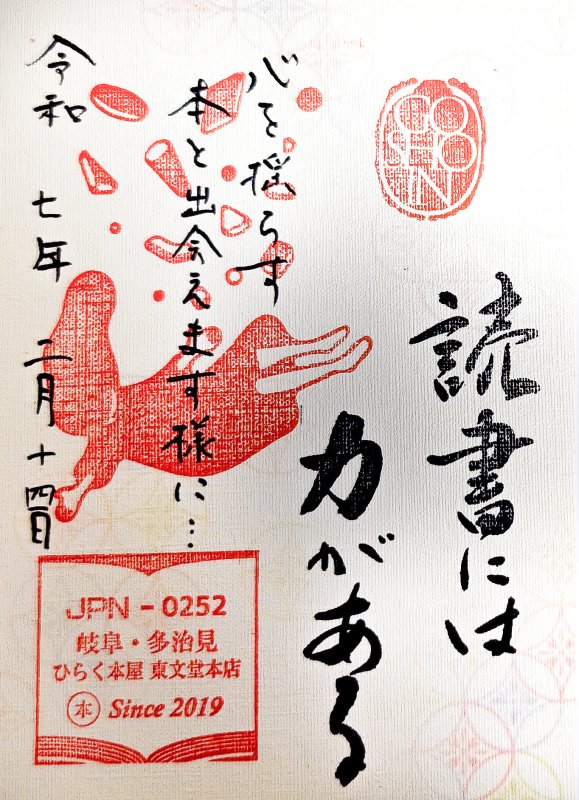 GO
SHO
IN
読書には
力がある
心を揺らす
本と出会えます様に…
令和 七年 二月 十四日
JPN - 0252
岐阜・多治見
ひらく本屋 東文堂本店
本 Since 2019